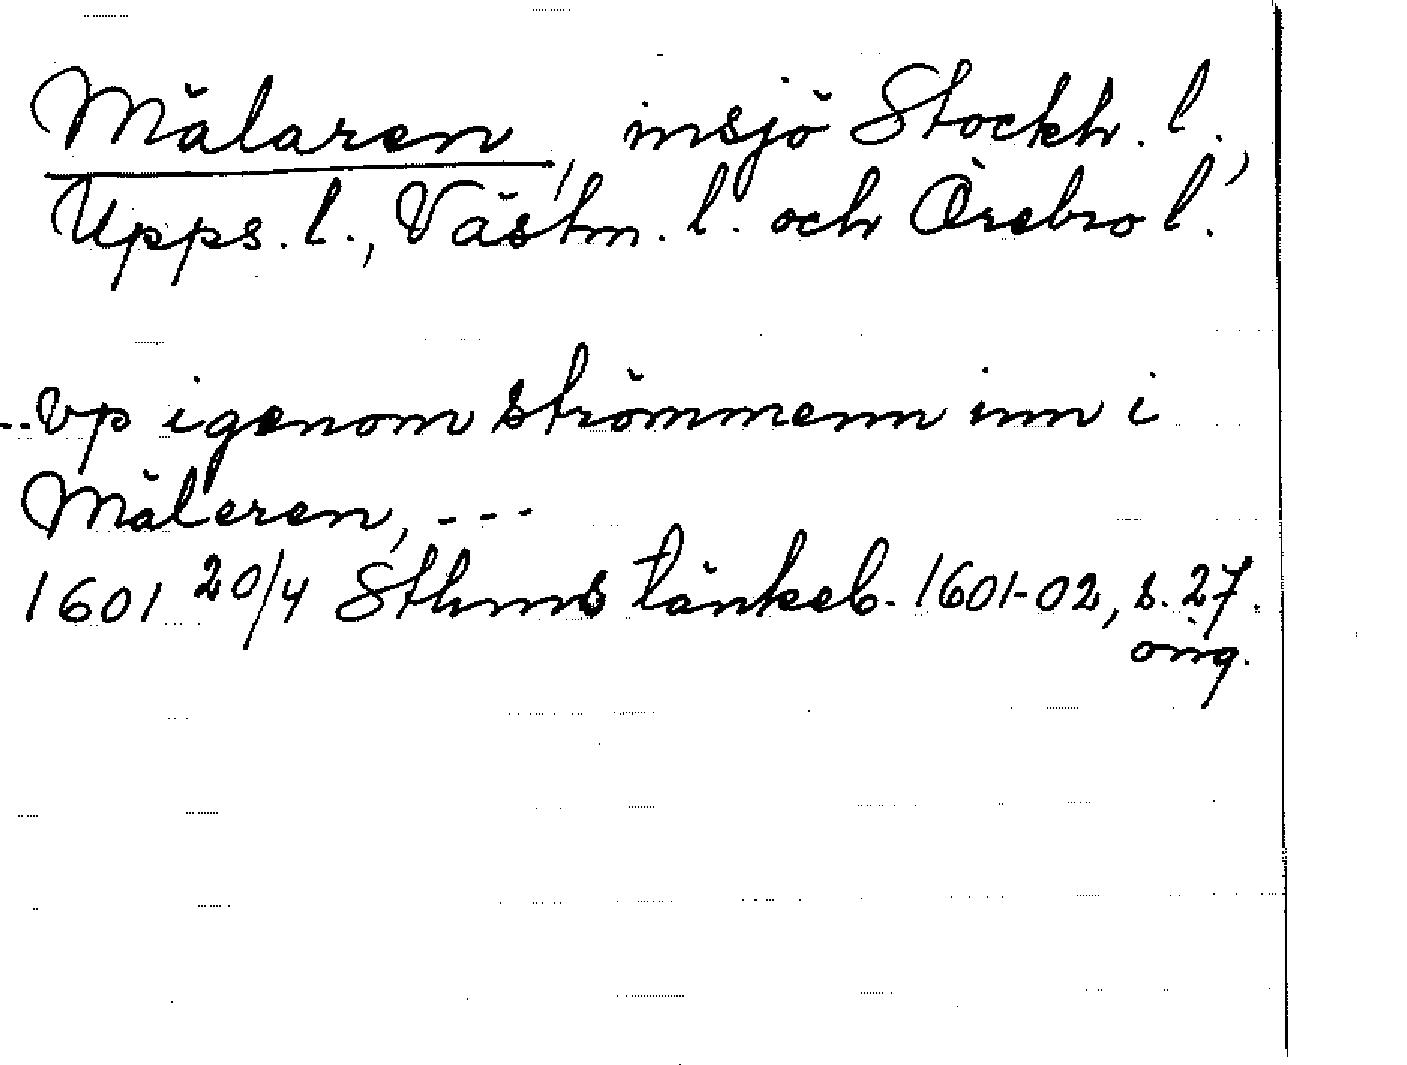 Mälaren, insjö Stockh. l.,
Upps. l., Västm. l. och Örebro l.
--vp igenom strömmenn inn i
Mäleren, ---
1601 20/4 Sthms tänkeb. 1601-02, s. 27.
orig.